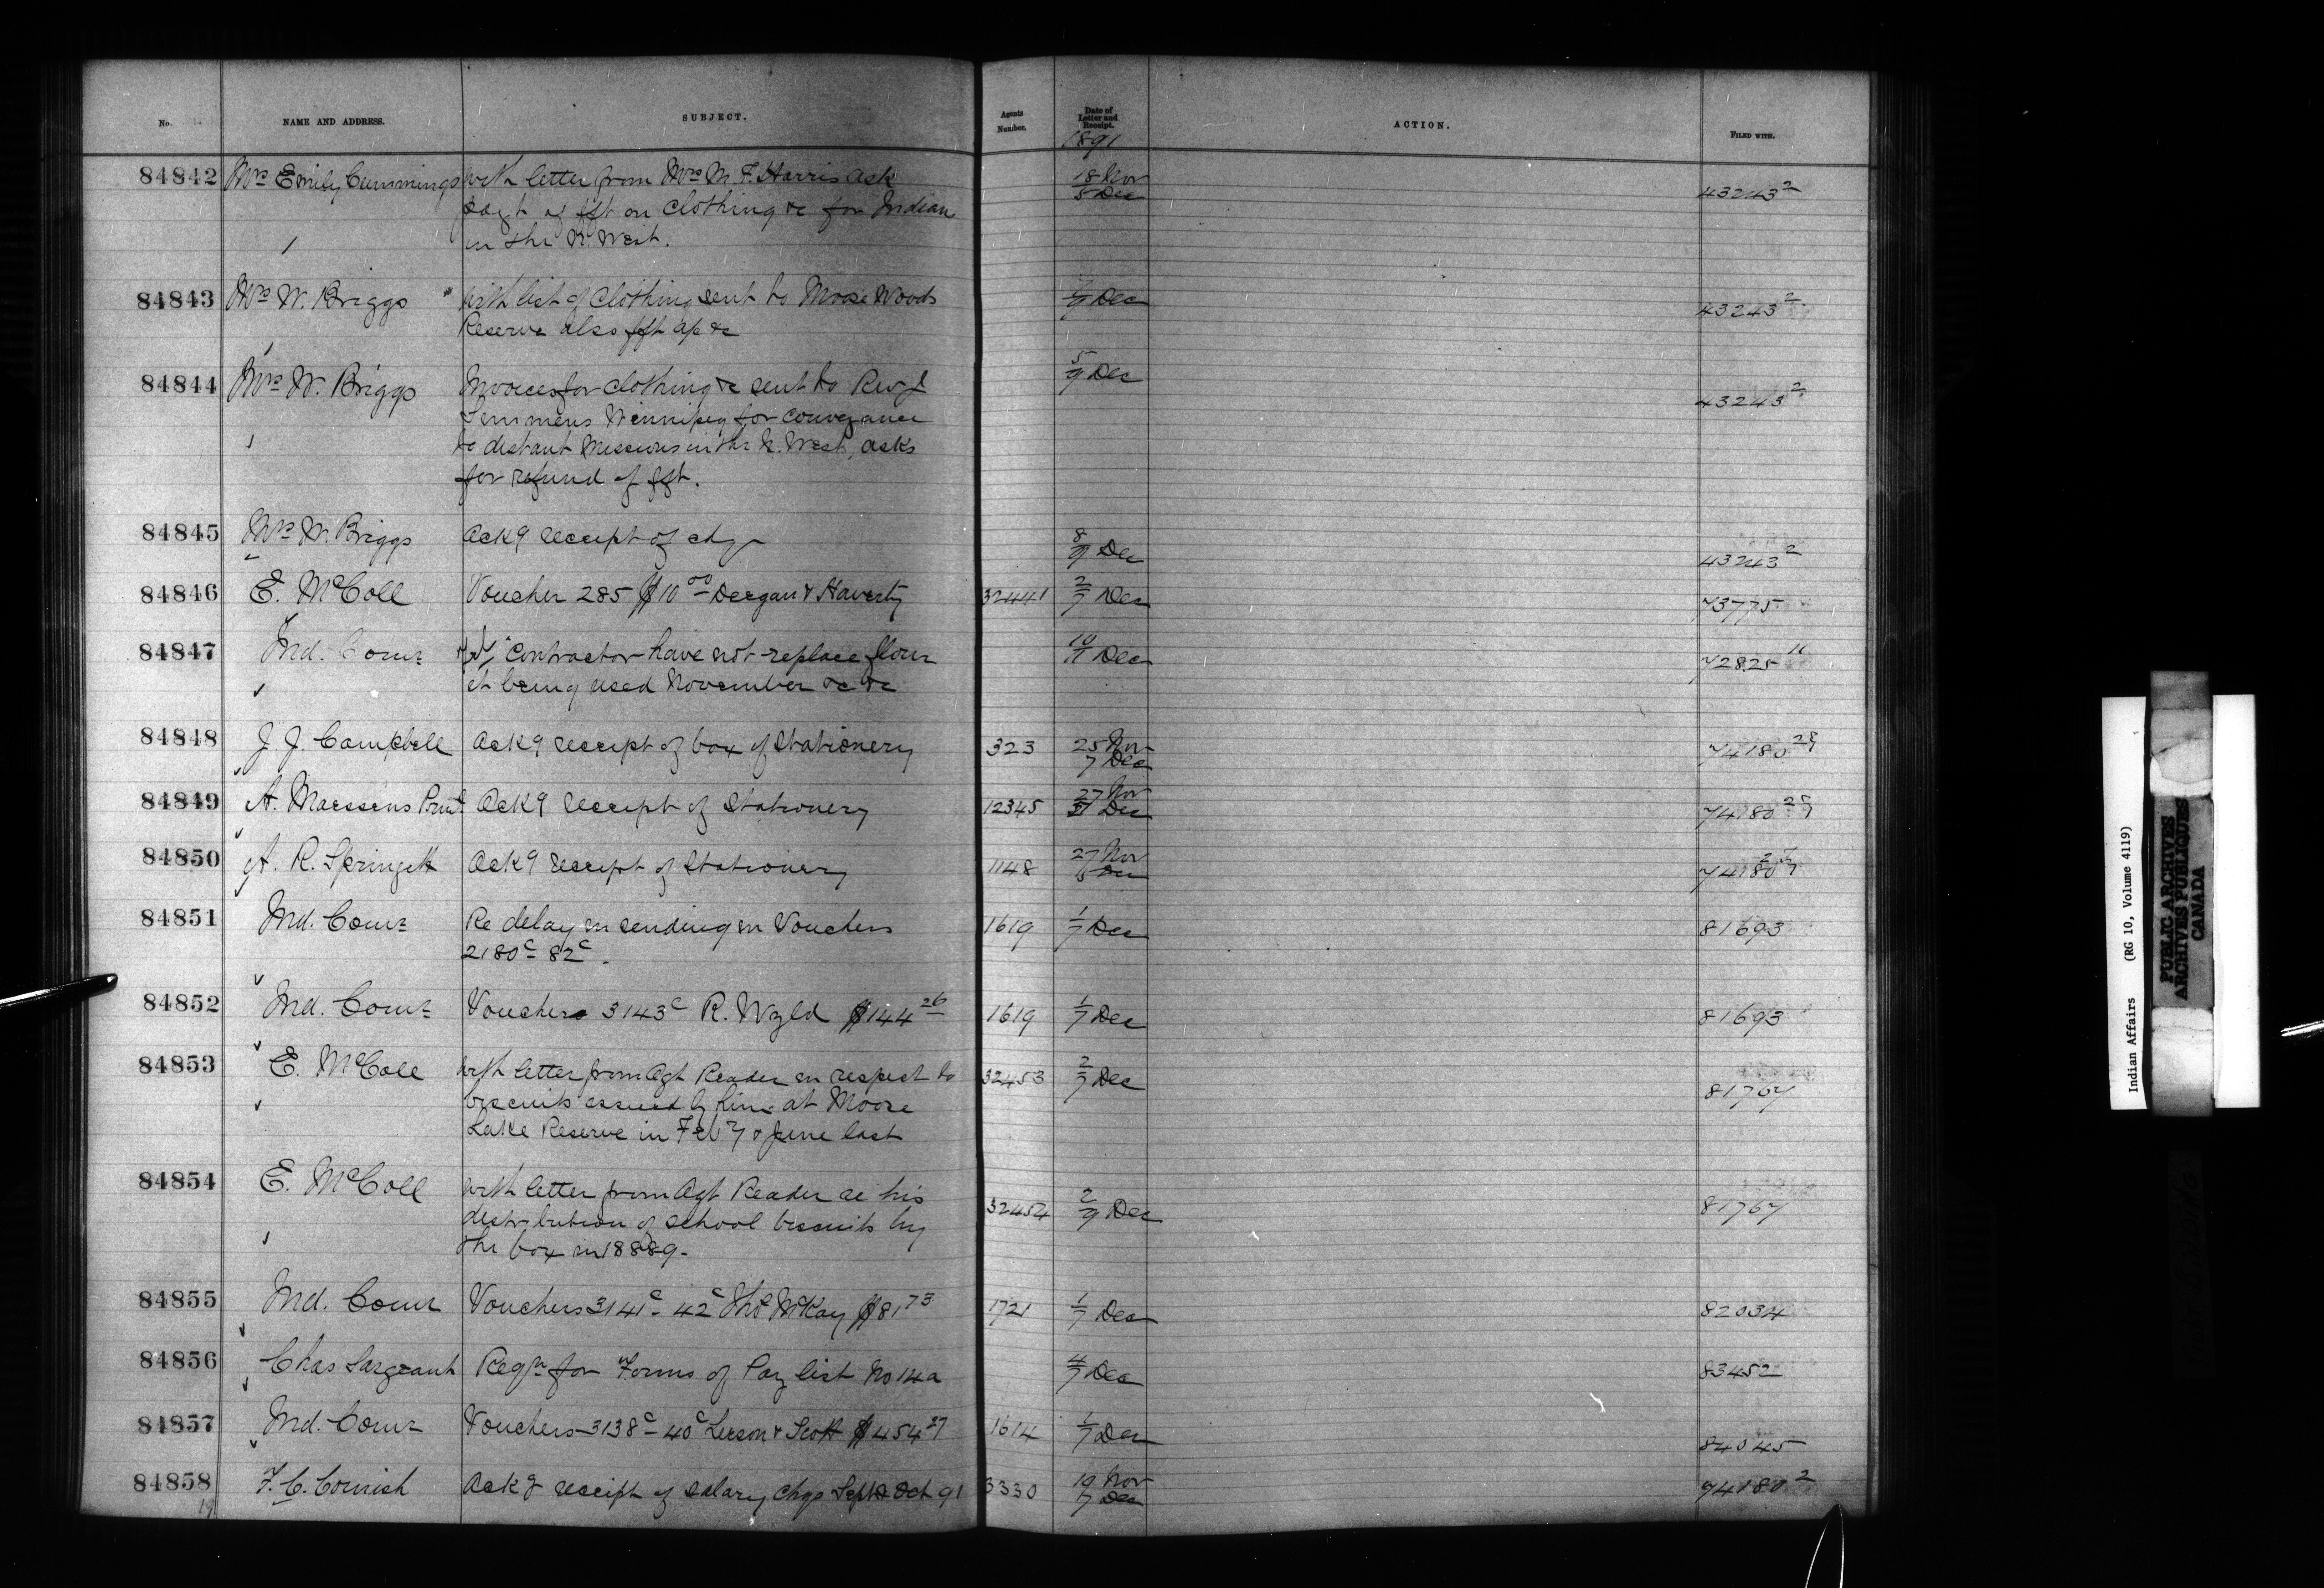 No. NAME AND ADDRESS. SUBJECT. Agents Number. Date of Letter and Receipt. ACTION. FILED WITH.
1891
84842 Mrs Emily Cummings with letter from Mrs M. F. Harris ask 18 Nov 43243 2
payt of fft on Clothing &c for Indian 5 Dec
in the N. West.
84843 Mrs W. Briggs with list of Clothing sent to Moose Woods 9 Dec 43243 2
Reserve also fft ap &c
84844 Mrs W. Briggs Invoices for clothing &c sent to Rev J 5/9 Dec 43243 2
Semmens Winnipeg for conveyance
to distant Missions in the N. West, asks
for refund of fft.
84845 Mrs W. Briggs Ackg receipt of chq 8/9 Dec 43243 2
84846 E. McColl Voucher 285 $10 00 Deegan & Haverty 32441 2/7 Dec 73775
84847 Ind. Comr Contractor have not replace flour 10/11 Dec 72825 11
it being used November &c &c
84848 J J. Campbell Ackg receipt of box of Stationery 323 25 Nov 74180 29
7 Dec
84849 A. Maessens Ackg receipt of Stationery 12345 27 Nov 74180
Dec
84850 A. R. Springett Ackg receipt of Stationery 1148 27 Nov 74180
84851 Ind. Comr Re delay in sending in Vouchers 1619 1/7 Dec 81693
2180c 82c.
84852 Ind. Comr Vouchers 3143c R. Wyld $144 26 1619 1/7 Dec 81693
84853 E. McColl with letter from Agt Reader in respect to 32453 2/7 Dec 81767
biscuits issued by him at Moose
Lake Reserve in Feby & June last
84854 E. McColl with letter from Agt Reader re his 32454 2/9 Dec 81767
distribution of school biscuits by
the box in 18889.
84855 Ind. Comr Vouchers 3141c 42c Thos McKay $81 73 1721 1/7 Dec 82034
84856 Chas Sargeant Reqn for Forms of Pay list No 14a 4/7 Dec 83452
84857 Ind. Comr Vouchers 3138c 40c Leeson & Scott $454 27 1614 1/7 Dec 84045
84858 F. C. Cornish Ackg receipt of salary chqs Sept & Oct 91 3330 19 Nov 74180 2
7 Dec
Indian Affairs (RG 10, Volume 4119)
PUBLIC ARCHIVES
ARCHIVES PUBLIQUES
CANADA